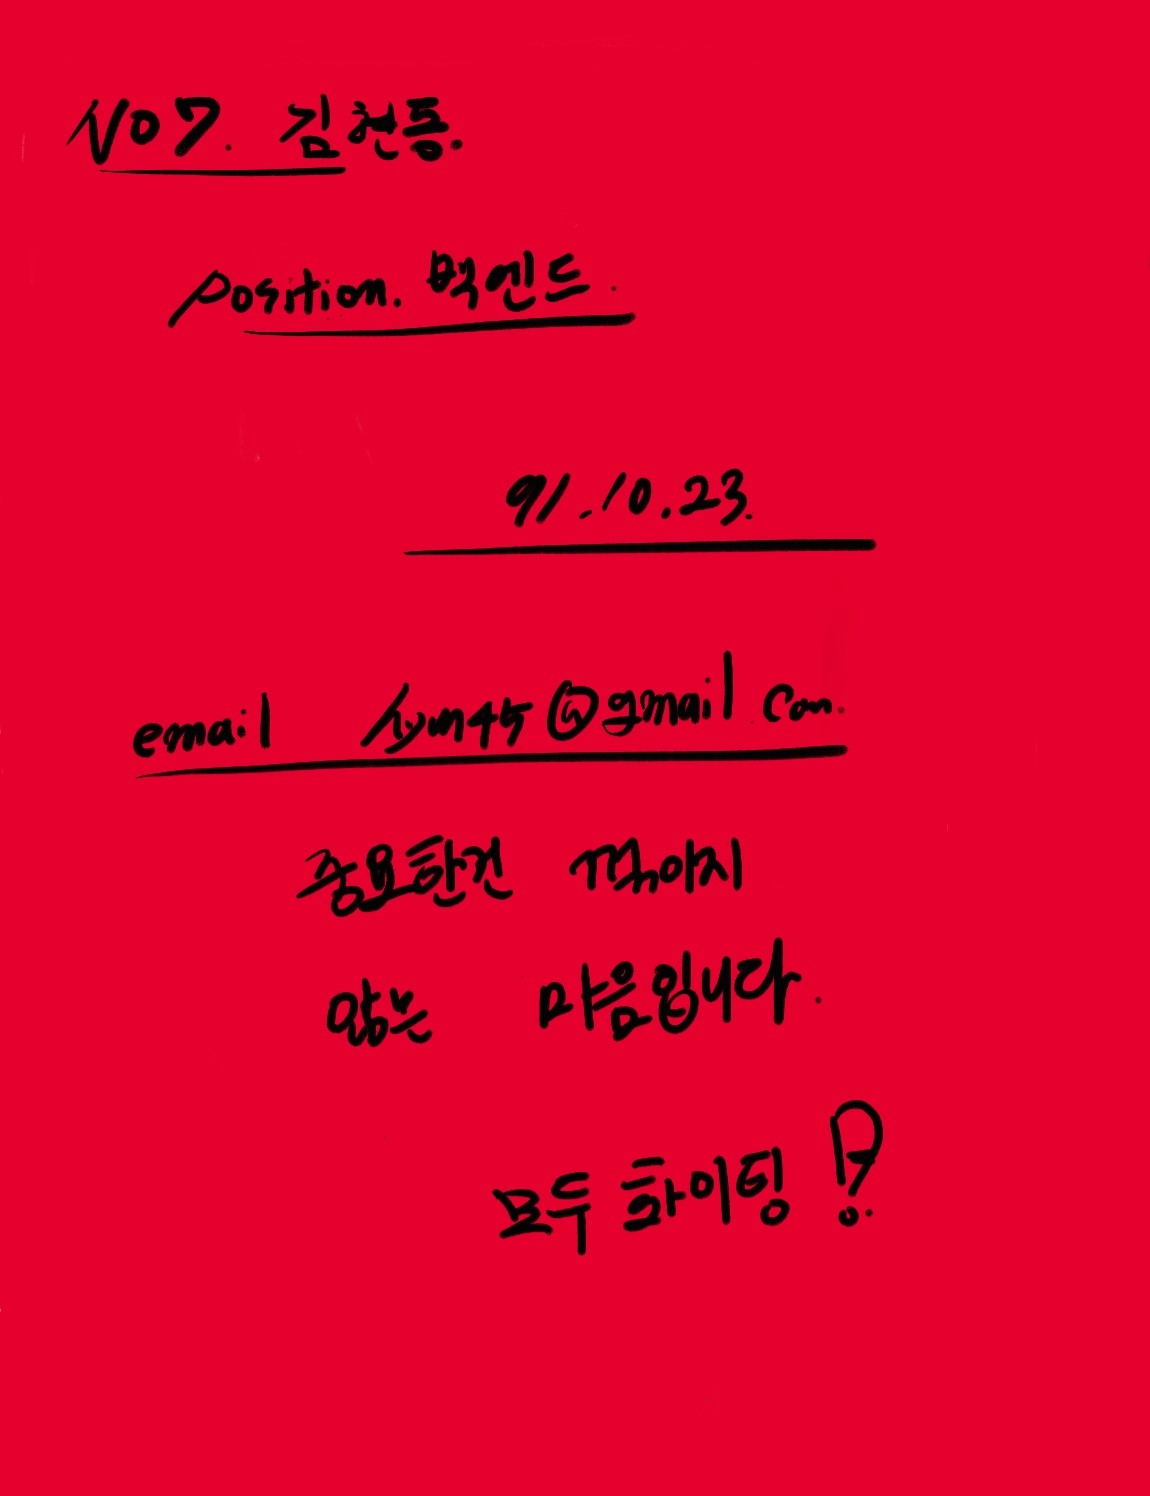 NO 7. 김현동.
position. 백엔드.
91.10.23.
email @gmail com.
중요한건 꺾이지
않는 마음입니다.
모두 화이팅!?